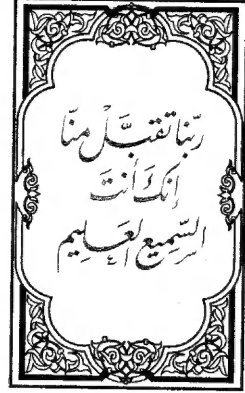 ربّنا تقبّل منّا
إنّك أنتَ
السّميع العليم